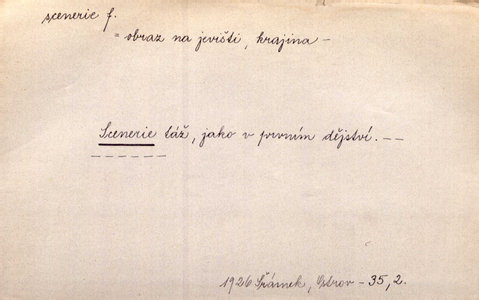 scenerie f.
= obraz na jevišti, krajina –
Scenerie táž, jako v prvním dějství. – –
1926 Šrámek, Ostrov – 35, 2.